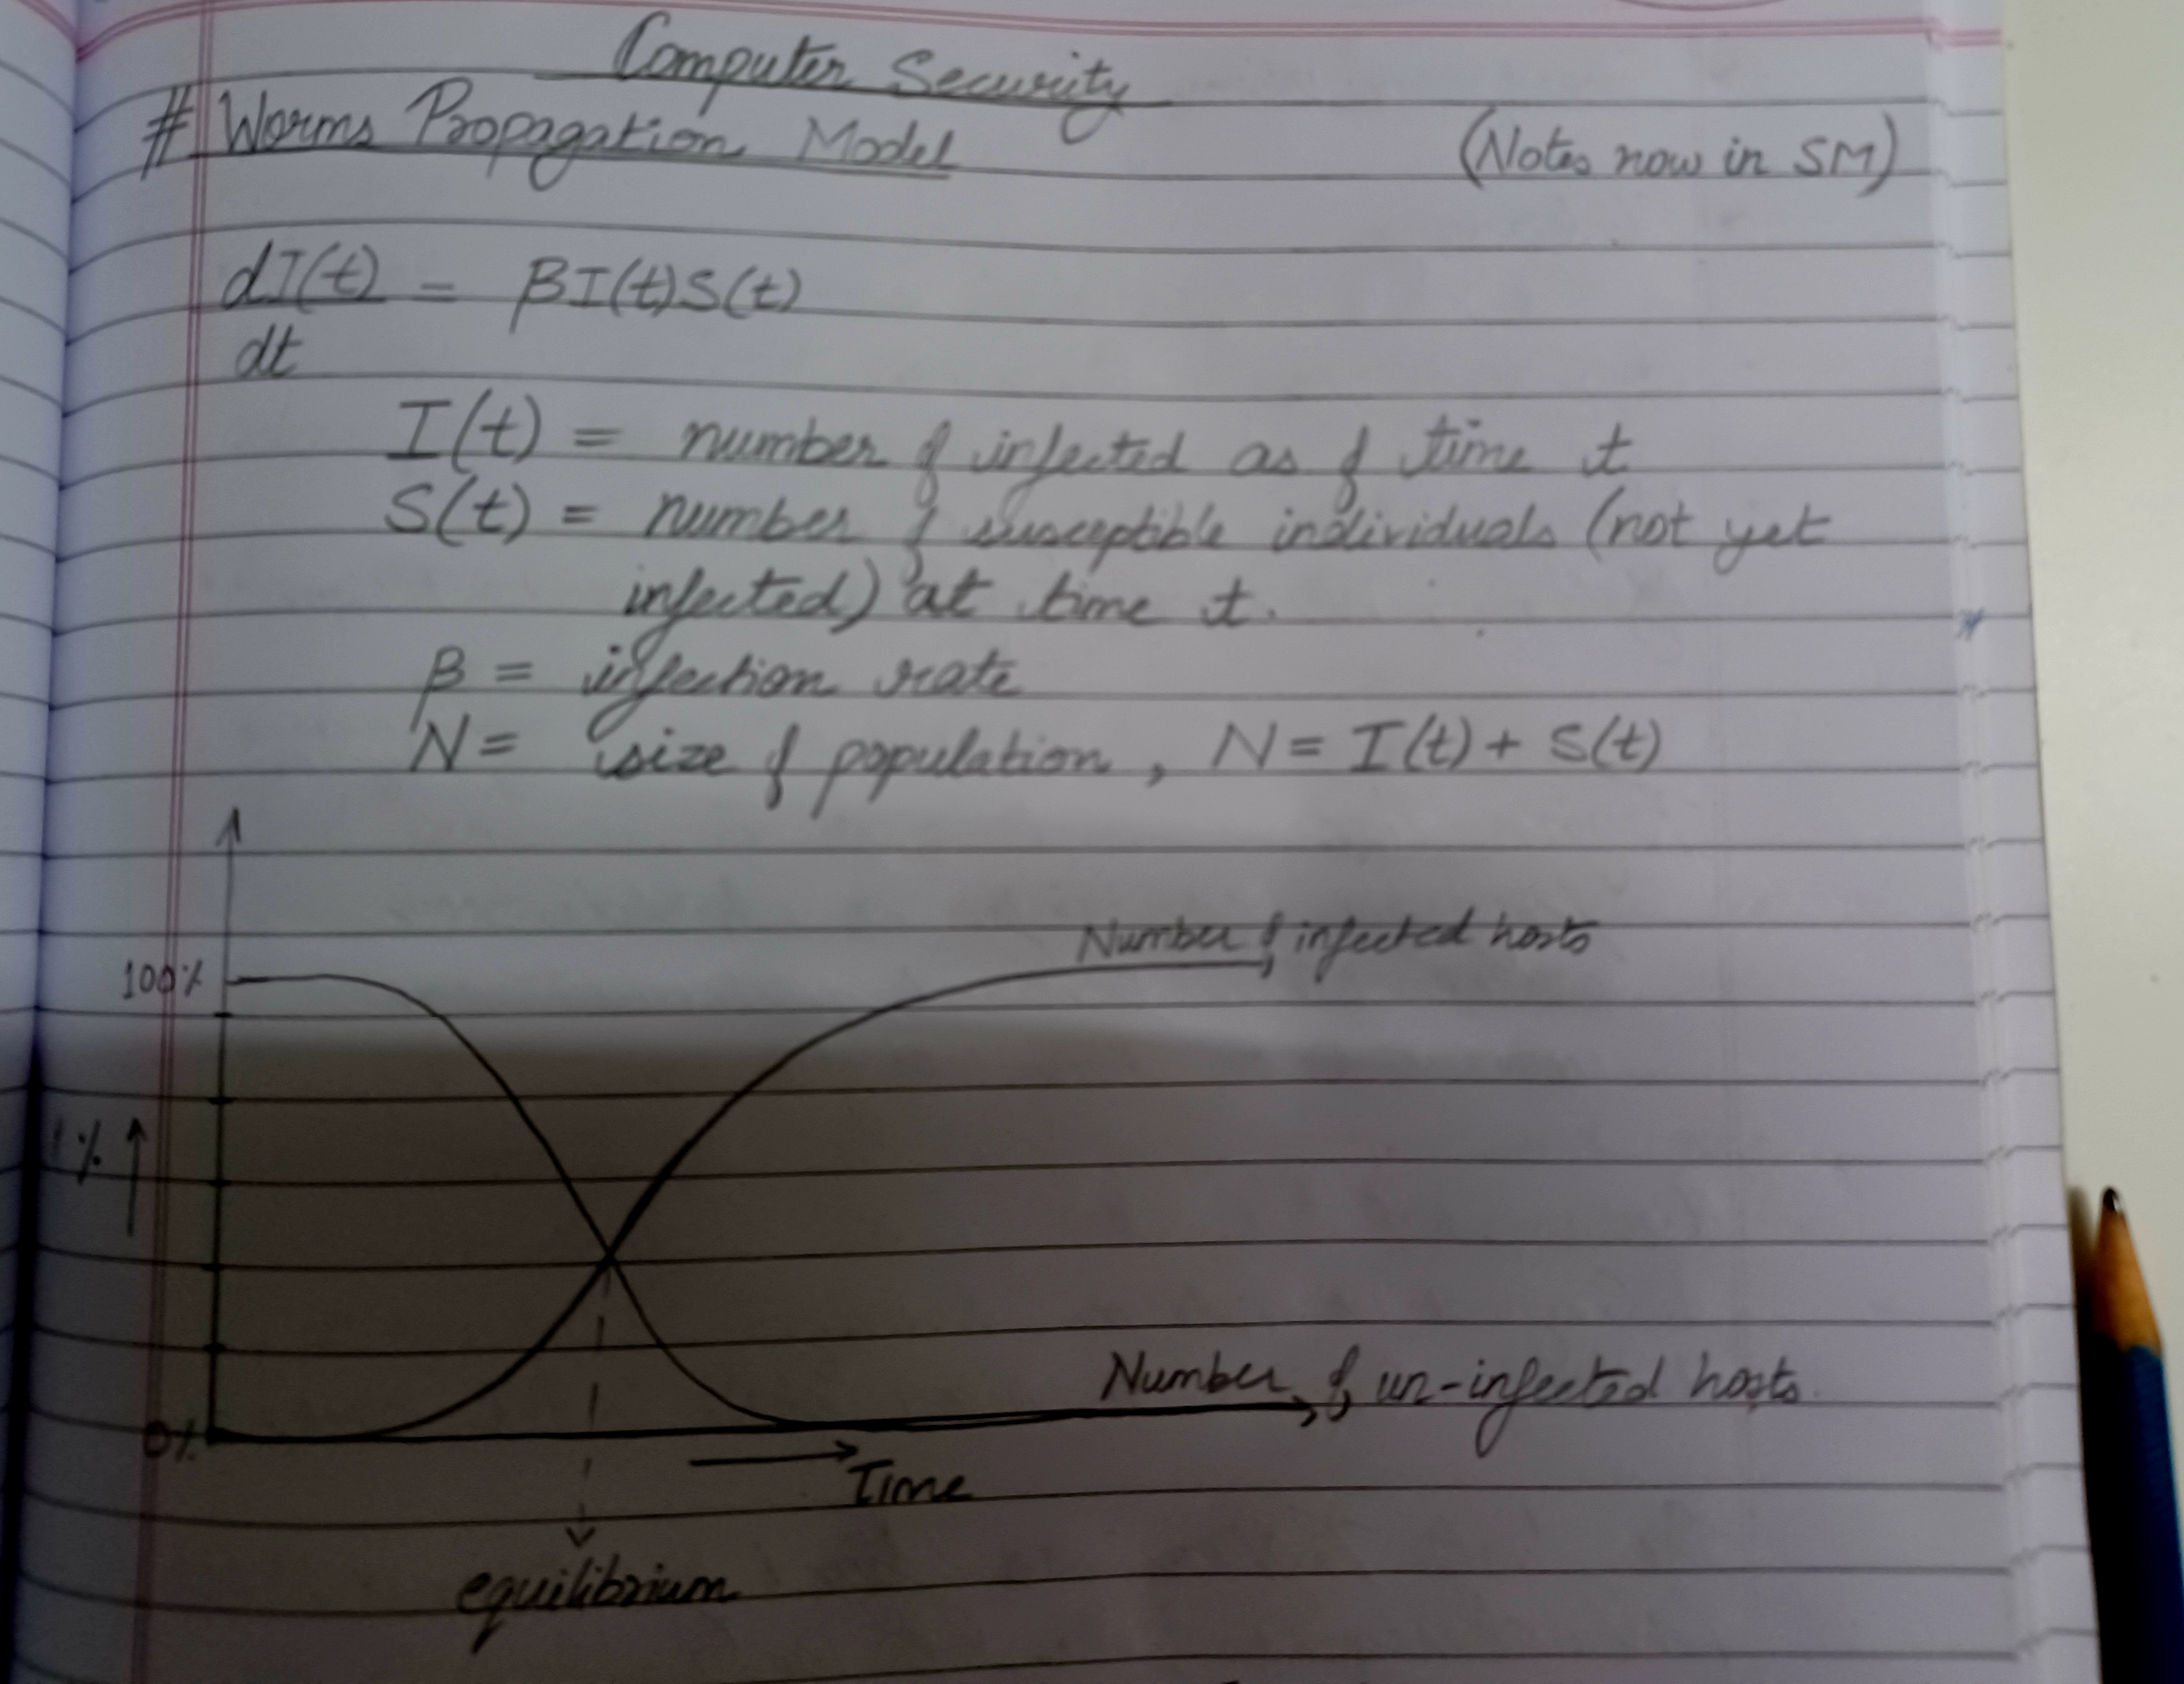 Computer Security
# Worms Propagation Model
(Notes now in SM)
dI(t) = βI(t)S(t)
dt
I(t) = number of infected as of time t
S(t) = number of susceptible individuals (not yet
infected) at time t.
β = infection rate
N = size of population, N = I(t) + S(t)
Number of infected hosts
100%
%
Number of un-infected hosts.
0%
Time
equilibrium